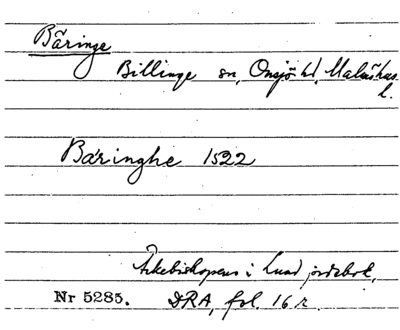 Bäringe
Billinge sn, Onsjö hd, Malmöhus
l.
Bäringhe 1522
Ärkebiskopens i Lund jordebok,
Nr 5285. DRA, fol. 16 r.